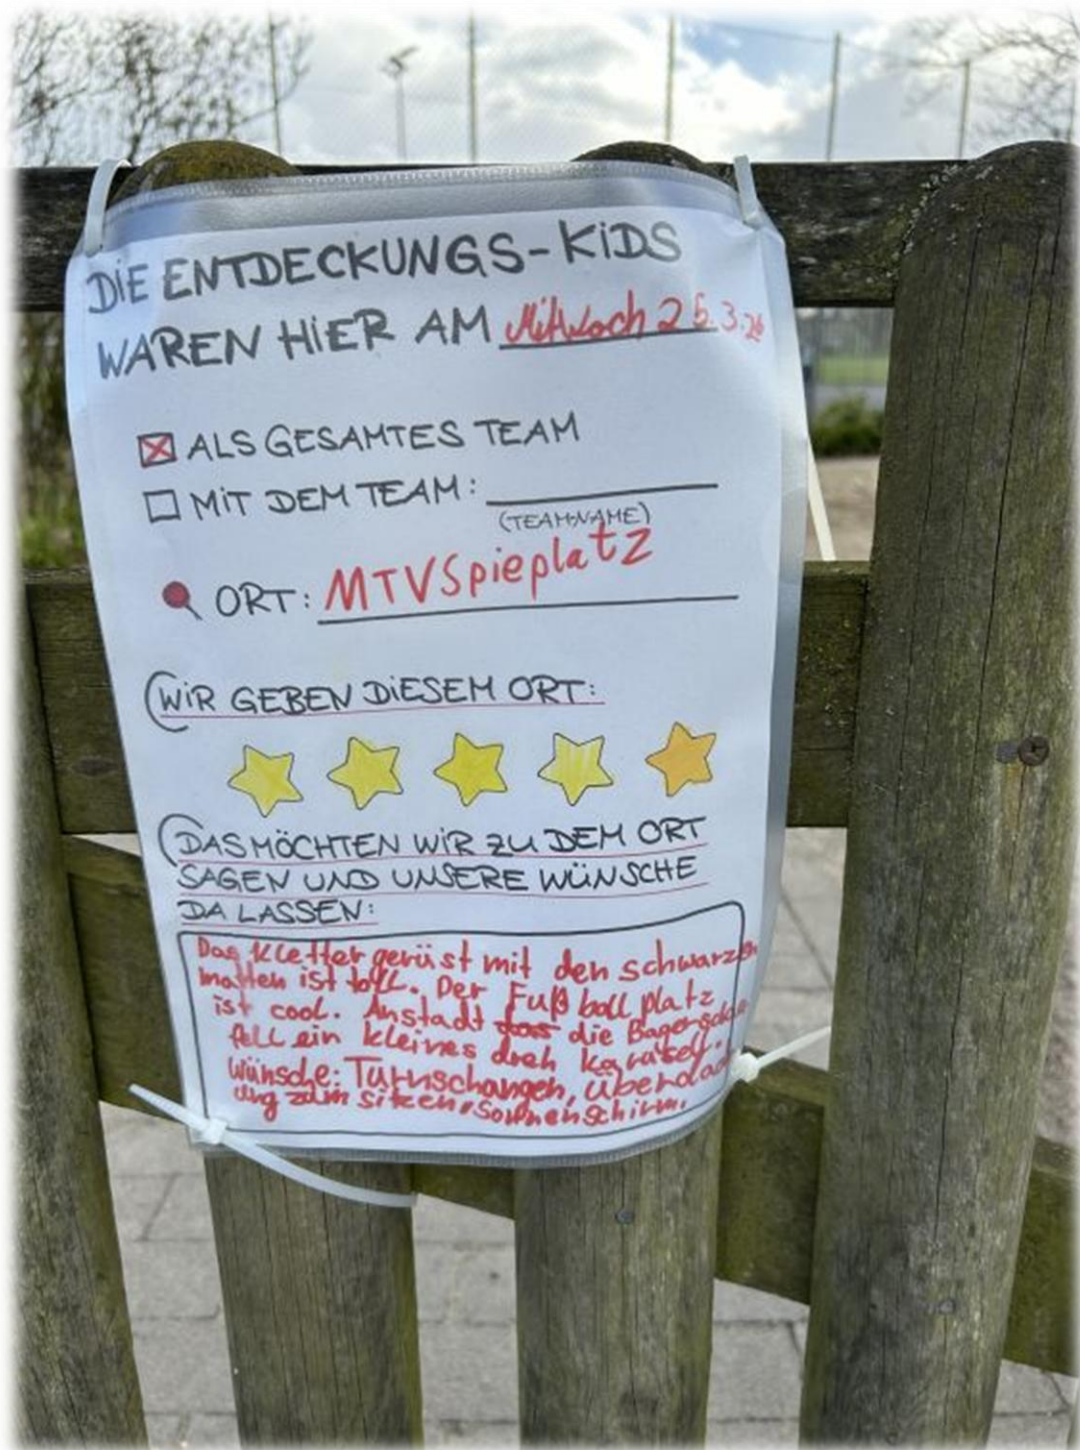 DiE ENTDECKUNGS-KiDS
WAREN HiER AM Mittwoch 25.3.26
ALS GESAMTES TEAM
MiT DEM TEAM:
(TEAM-NAME)
ORT: MTVSpieplatz
WiR GEBEN DiESEM ORT:
DAS MÖCHTEN WiR ZU DEM ORT
SAGEN UND UNSERE WÜNSCHE
DA LASSEN:
Das Kletter gerüst mit den schwarzen
matten ist toll. Der Fuß ball platz
ist cool. Anstadt das die
fell ein kleines dreh karusell.
Wünsche: Turnschangen, überdach
ung zum sitzen, Sonnenschirm.